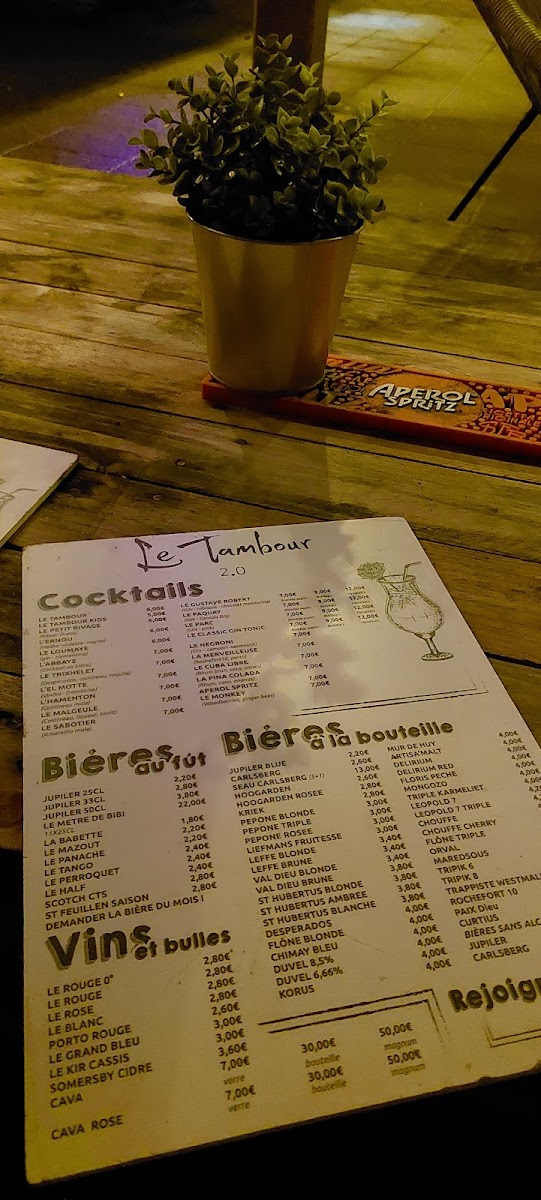 APEROL
SPRITZ
Le Tambour
2.0
Cocktails
LE TAMBOUR 6,00€
LE TAMBOUR KIDS 5,00€
LE PETIT RIVAGE 6,00€
L'ERNOU 6,00€
LE LOUMAYE 7,00€
L'ABBAYE 7,00€
LE TRIXHELET 7,00€
L'EL MOTTE 7,00€
L'HAMENTON 7,00€
LE MALGEULE 7,00€
LE SABOTIER 7,00€
LE GUSTAVE ROBERT 7,00€ 9,00€ 12,00€
LE PAQUAY 7,00€ 9,00€ 12,00€
LE PARC 7,00€ 9,00€ 12,00€
LE CLASSIC GIN TONIC 7,00€ 9,00€ 12,00€
LE NEGRONI 7,00€
LA MERVEILLEUSE 7,00€
LE CUBA LIBRE 7,00€
LA PINA COLADA 7,00€
APEROL SPRITZ 7,00€
LE MONKEY 7,00€
Bières
au fût
JUPILER 25CL 2,20€
JUPILER 33CL 2,80€
JUPILER 50CL 3,80€
LE METRE DE BIBI 22,00€
11X25CL
LA BABETTE 1,80€
LE MAZOUT 2,20€
LE PANACHE 2,20€
LE TANGO 2,40€
LE PERROQUET 2,40€
LE HALF 2,40€
SCOTCH CTS 2,80€
ST FEUILLEN SAISON 2,80€
DEMANDER LA BIÈRE DU MOIS !
Bières
à la bouteille
JUPILER BLUE 2,20€
CARLSBERG 2,60€
SEAU CARLSBERG (5+1) 13,00€
HOEGARDEN 2,60€
HOOGARDEN ROSEE 2,80€
KRIEK 2,80€
PEPONE BLONDE 3,00€
PEPONE TRIPLE 3,00€
PEPONE ROSEE 3,00€
LIEFMANS FRUITESSE 3,00€
LEFFE BLONDE 3,40€
LEFFE BRUNE 3,40€
VAL DIEU BLONDE 3,40€
VAL DIEU BRUNE 3,80€
ST HUBERTUS BLONDE 3,80€
ST HUBERTUS AMBREE 3,80€
ST HUBERTUS BLANCHE 3,80€
DESPERADOS 4,00€
FLÔNE BLONDE 4,00€
CHIMAY BLEU 4,00€
DUVEL 8,5% 4,00€
DUVEL 6,66% 4,00€
KORUS 4,00€
MUR DE HUY 4,00€
ARTISA'MALT 4,00€
DELIRIUM 4,00€
DELIRIUM RED 4,00€
FLORIS PECHE
MONGOZO
TRIPLE KARMELIET
LEOPOLD 7
LEOPOLD 7 TRIPLE
CHOUFFE
CHOUFFE CHERRY
FLÔNE TRIPLE
ORVAL
MAREDSOUS
TRIPIK 6
TRIPIK 8
TRAPPISTE WESTMAL
ROCHEFORT 10
PAIX Dieu
CURTIUS
BIÈRES SANS ALC
JUPILER
CARLSBERG
Vins
et bulles
LE ROUGE 0° 2,80€
LE ROUGE 2,80€
LE ROSE 2,80€
LE BLANC 2,80€
PORTO ROUGE 2,60€
LE GRAND BLEU 3,00€
LE KIR CASSIS 3,00€
SOMERSBY CIDRE 3,60€
CAVA 7,00€ 30,00€ 50,00€
verre bouteille magnum
CAVA ROSE 7,00€ 30,00€ 50,00€
verre bouteille magnum
Rejoign